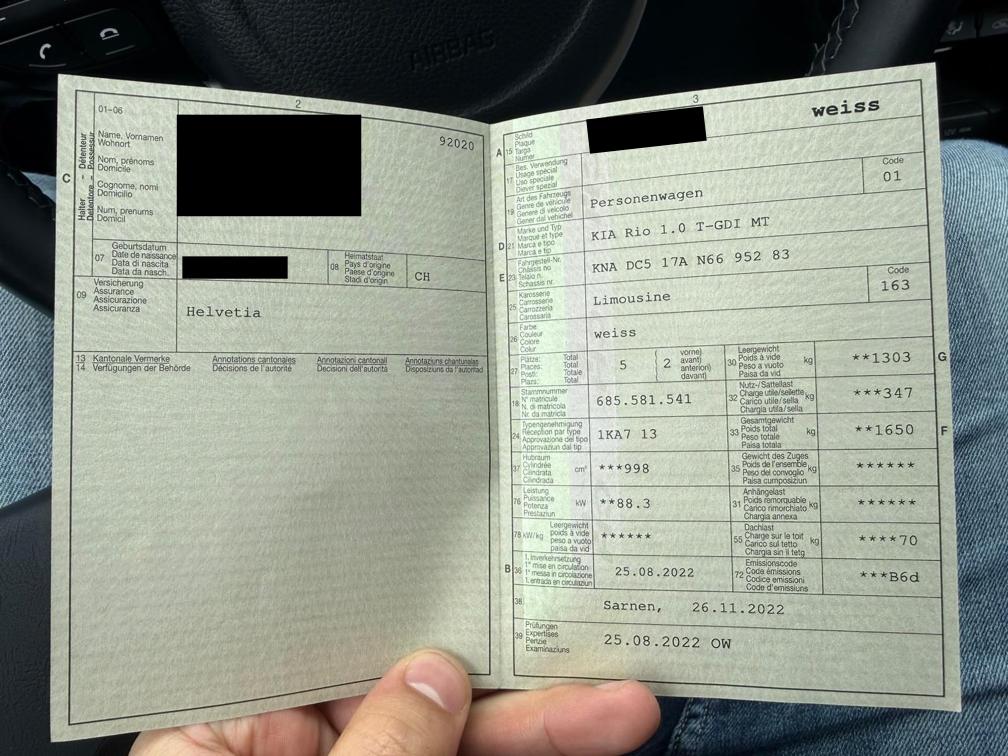 AIRBAG
2
01-06
C
Halter - Détenteur
Detentore - Possessur
Name, Vornamen
Wohnort
Nom, prénoms
Domicile
Cognome, nomi
Domicilio
Num, prenums
Domicil
92020
07
Geburtsdatum
Date de naissance
Data di nascita
Data da nasch.
08
Heimatstaat
Pays d'origine
Paese d'origine
Stadi d'origin
CH
09
Versicherung
Assurance
Assicurazione
Assicuranza
Helvetia
13 Kantonale Vermerke Annotations cantonales Annotazioni cantonali Annotaziuns chantunalas
14 Verfügungen der Behörde Décisions de l'autorité Decisioni dell'autorità Disposiziuns da l'autoritad
3
weiss
A 15
Schild
Plaque
Targa
Numer
17
Bes. Verwendung
Usage spécial
Uso speciale
Diever spezial
19
Art des Fahrzeugs
Genre de véhicule
Genere di veicolo
Gener dal vehichel
Personenwagen
Code
01
D 21
Marke und Typ
Marque et type
Marca e tipo
Marca e tip
KIA Rio 1.0 T-GDI MT
E 23
Fahrgestell-Nr.
Châssis no
Telaio n.
Schassis nr.
KNA DC5 17A N66 952 83
25
Karosserie
Carrosserie
Carrozzeria
Carossaria
Limousine
Code
163
26
Farbe
Couleur
Colore
Colur
weiss
27
Plätze: Total
Places: Total
Posti: Totale
Plazs: Total
5
2
vorne)
avant)
anteriori)
davant)
30
Leergewicht
Poids à vide
Peso a vuoto
Paisa da vid
kg
**1303
G
18
Stammnummer
N° matricule
N. di matricola
Nr. da matricla
685.581.541
32
Nutz-/Sattellast
Charge utile/sellette
Carico utile/sella
Chargia utila/sella
kg
***347
24
Typengenehmigung
Réception par type
Approvazione del tipo
Approvaziun dal tip
1KA7 13
33
Gesamtgewicht
Poids total
Peso totale
Paisa totala
kg
**1650
F
37
Hubraum
Cylindrée
Cilindrata
Cilindrada
cm³
***998
35
Gewicht des Zuges
Poids de l'ensemble
Peso del convoglio
Paisa cumposiziun
kg
******
76
Leistung
Puissance
Potenza
Prestaziun
kW
**88.3
31
Anhängelast
Poids remorquable
Carico rimorchiato
Chargia annexa
kg
******
78 kW/kg
Leergewicht
poids à vide
peso a vuoto
paisa da vid
******
55
Dachlast
Charge sur le toit
Carico sul tetto
Chargia sin il tetg
kg
****70
B 36
1. Inverkehrsetzung
1re mise en circulation
1a messa in circolazione
1. entrada en circulaziun
25.08.2022
72
Emissionscode
Code émissions
Codice emissioni
Code d'emissiuns
***B6d
38
Sarnen, 26.11.2022
39
Prüfungen
Expertises
Perizie
Examinaziuns
25.08.2022 OW